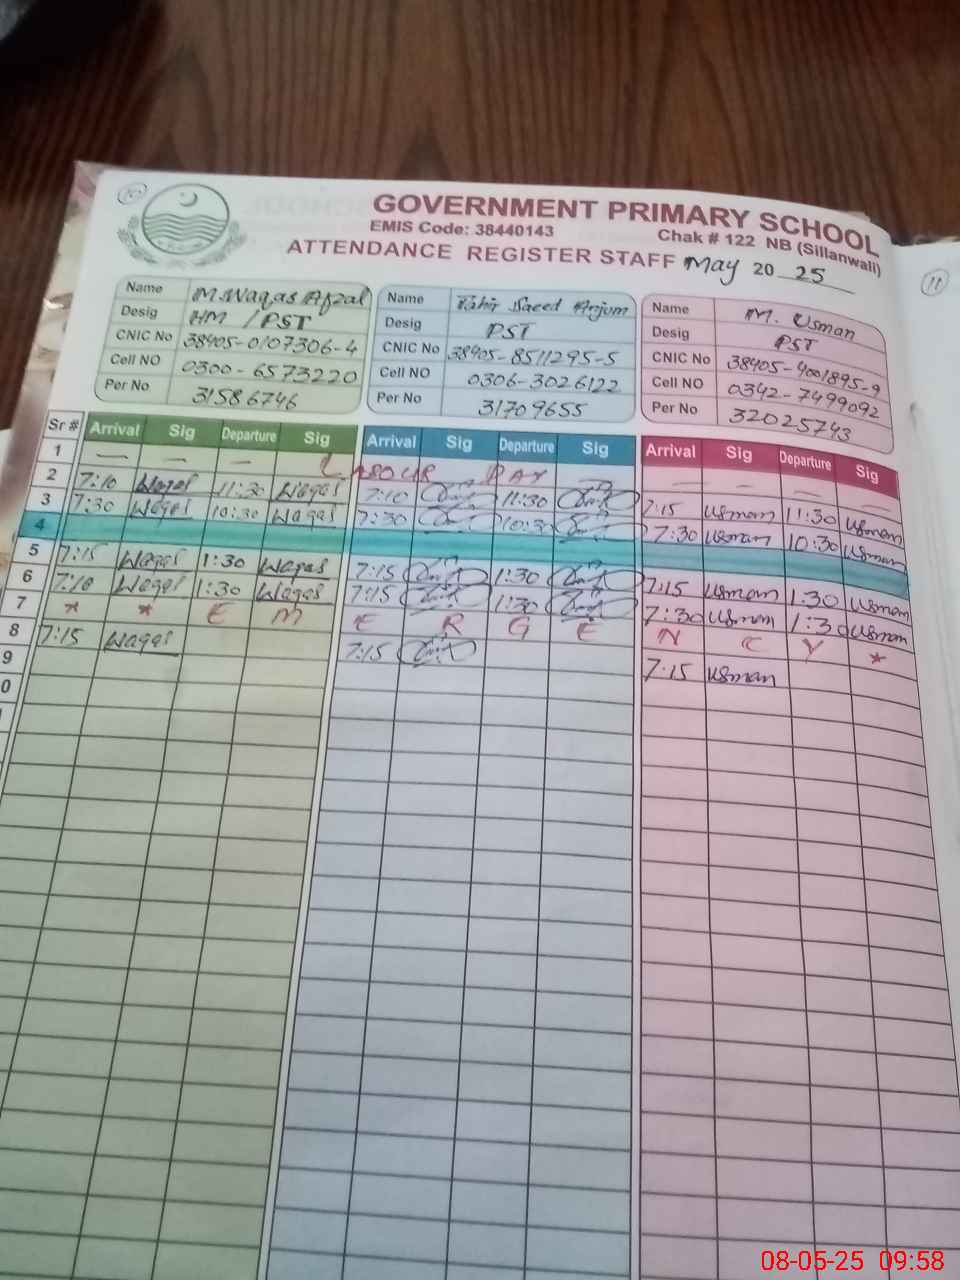 10
GOVERNMENT PRIMARY SCHOOL
EMIS Code: 38440143
Chak # 122 NB (Sillanwali)
ATTENDANCE REGISTER STAFF May 20 25
11
Name M. Waqas Afzal
Desig HM / PST
CNIC No 38405-0107306-4
Cell NO 0300-6573220
Per No 31586746
Name Tahir Saeed Anjum
Desig PST
CNIC No 38405-8511295-5
Cell NO 0306-3026122
Per No 31709655
Name M. Usman
Desig PST
CNIC No 38405-4001895-9
Cell NO 0342-7499092
Per No 32025743
Sr # Arrival Sig Departure Sig Arrival Sig Departure Sig Arrival Sig Departure Sig
1 — — — LABOUR DAY — — — —
2 7:10 Waqas 11:30 Waqas 7:10 11:30 7:15 Usman 11:30 Usman
3 7:30 Waqas 10:30 Waqas 7:30 10:30 7:30 Usman 10:30 Usman
4
5 7:15 Waqas 1:30 Waqas 7:15 1:30 7:15 Usman 1:30 Usman
6 7:10 Waqas 1:30 Waqas 7:15 1:30 7:30 Usman 1:30 Usman
7 * * E M E R G E N C Y *
8 7:15 Waqas 7:15 7:15 Usman
9
0
08-05-25 09:58